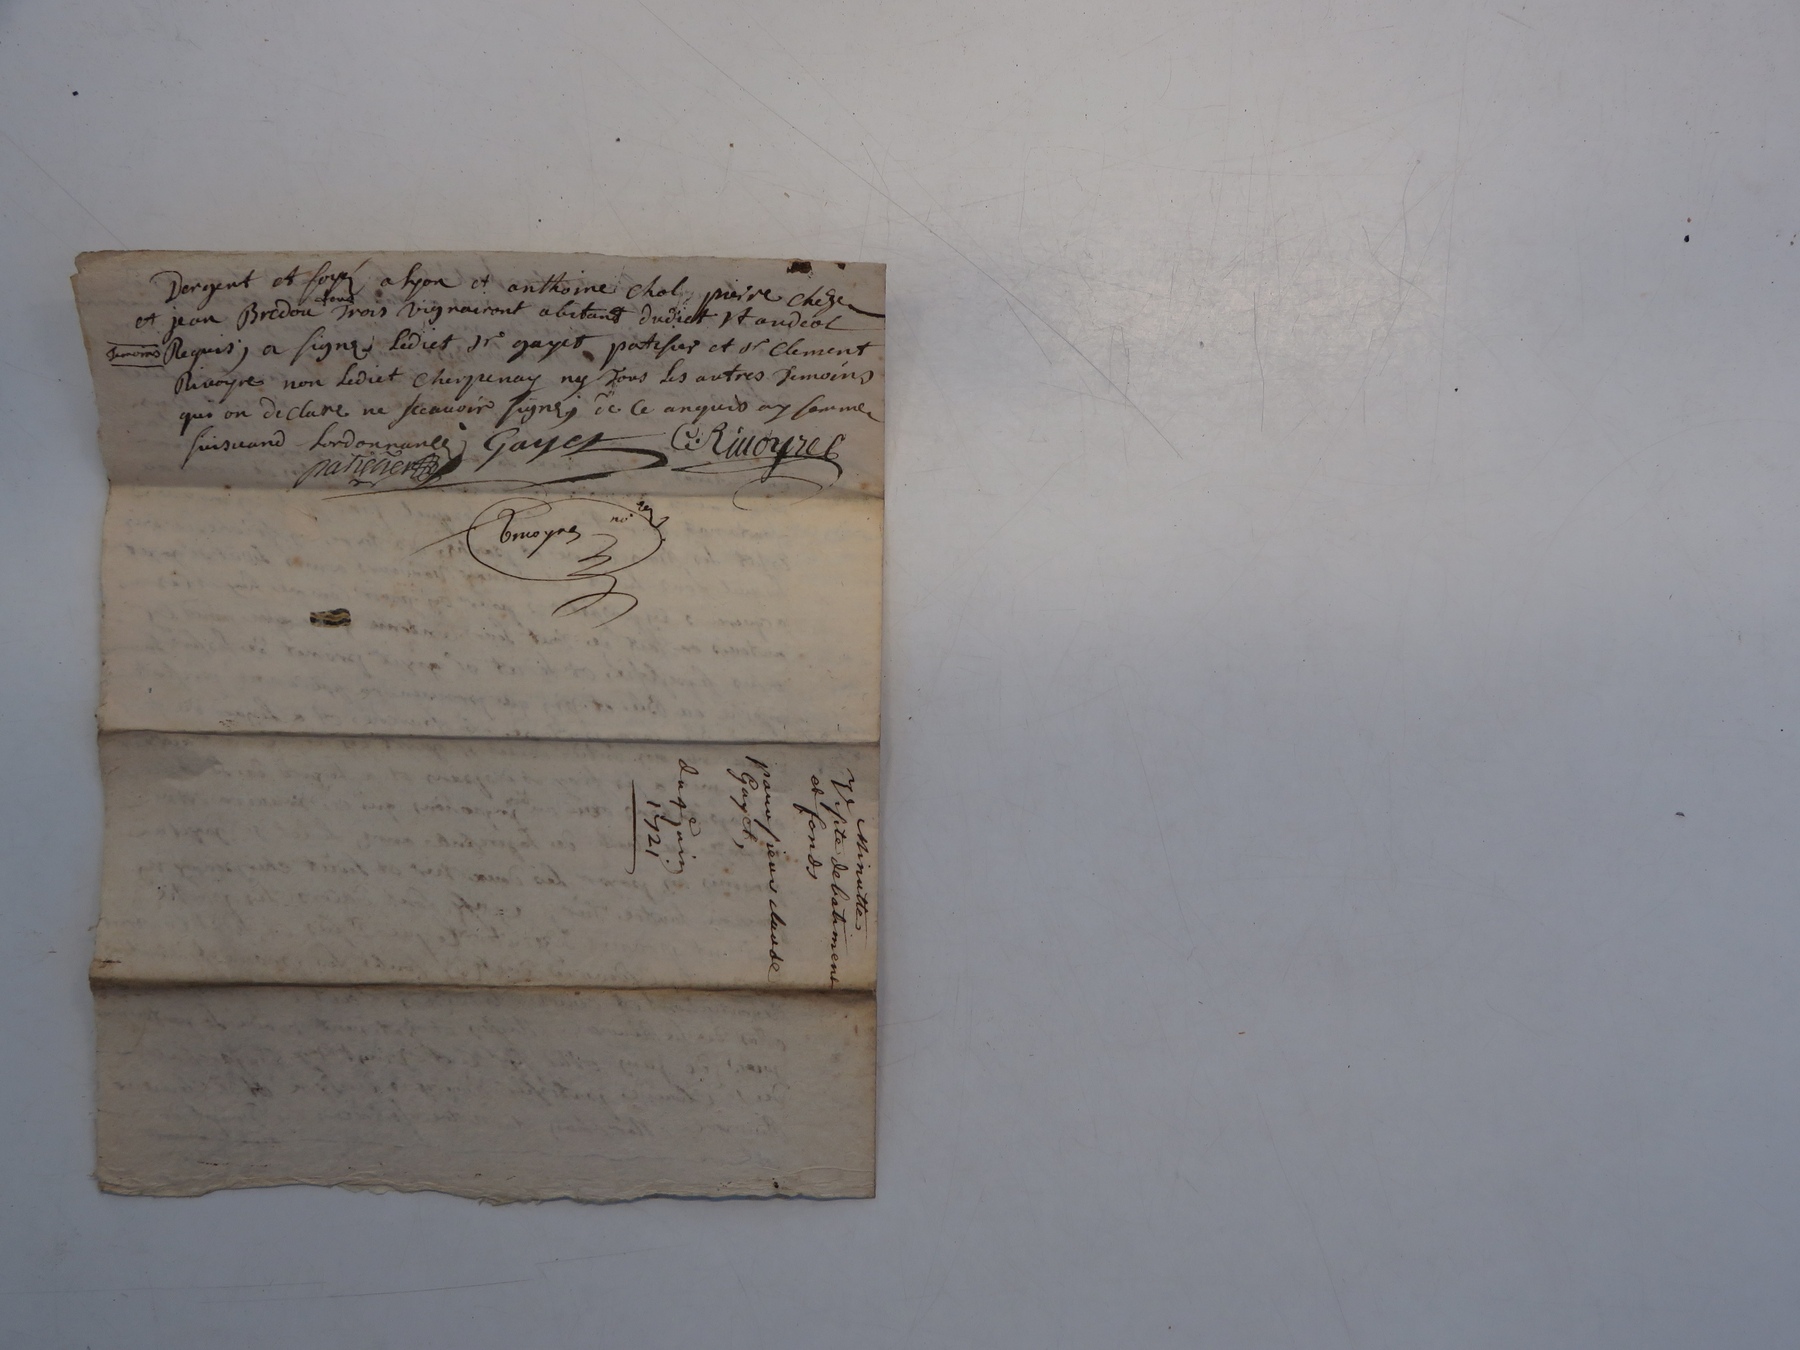 Dergent et soye a lyon et anthoine chol, pierre cheze
et jean Bredou tous trois vignairont abitant dudict St andeol
temoins Requis, a signe, ledict sr gayet patisier et sr Clement
Rivoyre non ledict Cherpenay ny tous les autres temoins
qui on declare ne scavoir signe, de ce anquis ay somme
suisvand lordonnance,
Gayet
C. Rivoyre
patissier
Rivoyre nore
Minutte
Visite de batiment
et fonds
pour sieur claude
Gayet,
du 9e juin
1721